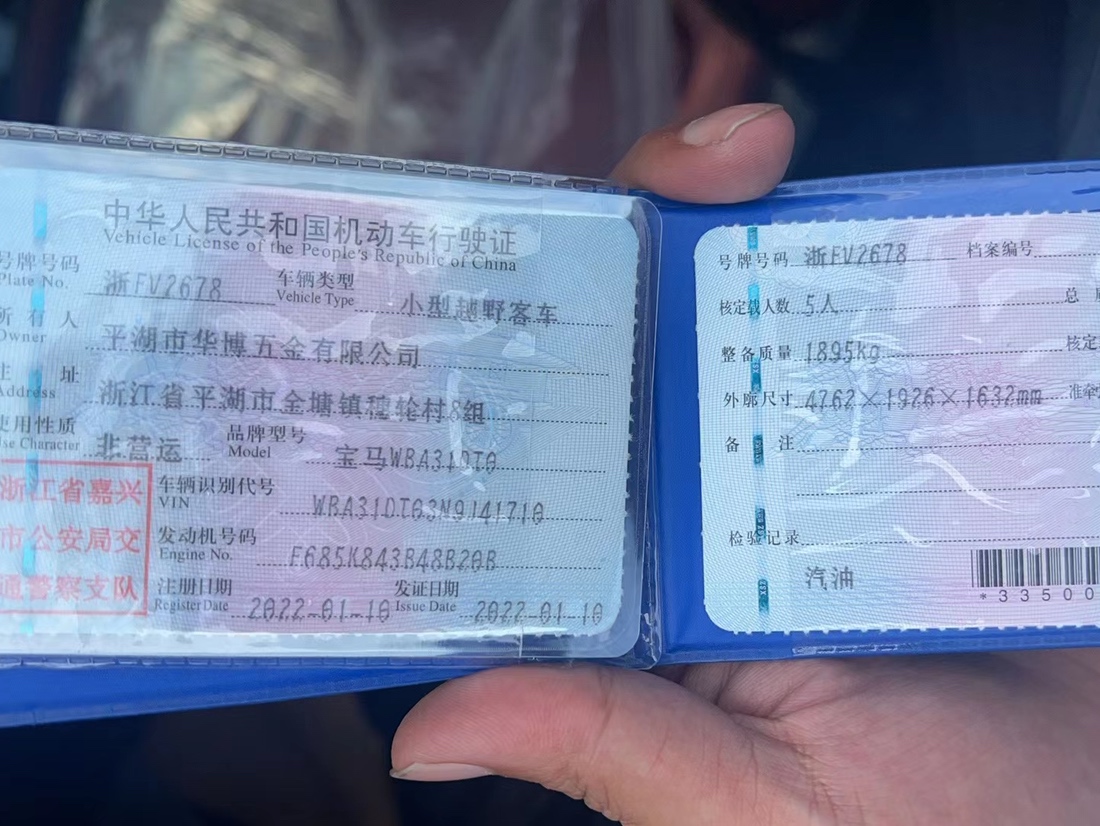 中华人民共和国机动车行驶证
Vehicle License of the People's Republic of China
号牌号码 浙FV2678 车辆类型 小型越野客车
Plate No. Vehicle Type
所有人 平湖市华博五金有限公司
Owner
住址 浙江省平湖市金塘镇穗轮村8组
Address
使用性质 非营运 品牌型号 宝马WBA31DT0
Use Character Model
浙江省嘉兴
市公安局交
通警察支队
车辆识别代号 WBA31DT03N9J41710
VIN
发动机号码 F685K843B48B20B
Engine No.
注册日期 2022-01-10 发证日期 2022-01-10
Register Date Issue Date
号牌号码 浙FV2678 档案编号
核定载人数 5人 总
整备质量 1895kg 核定
外廓尺寸 4762×1926×1632mm 准牵
备注
检验记录
汽油
*33500